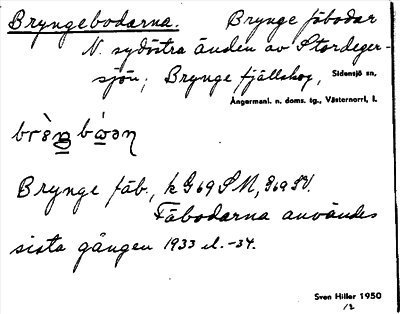 Bryngebodarna. Brynge fäbodar
N. sydöstra änden av Stordeger-
sjön; Brynge fjällskog, Sidensjö sn,
Ångermanl. n. doms. tg., Västernorrl. l.
Brynge fäb., k G69 SN, G69 SV.
Fäbodarna användes
sista gången 1933 el. -34.
Sven Hiller 1950
12